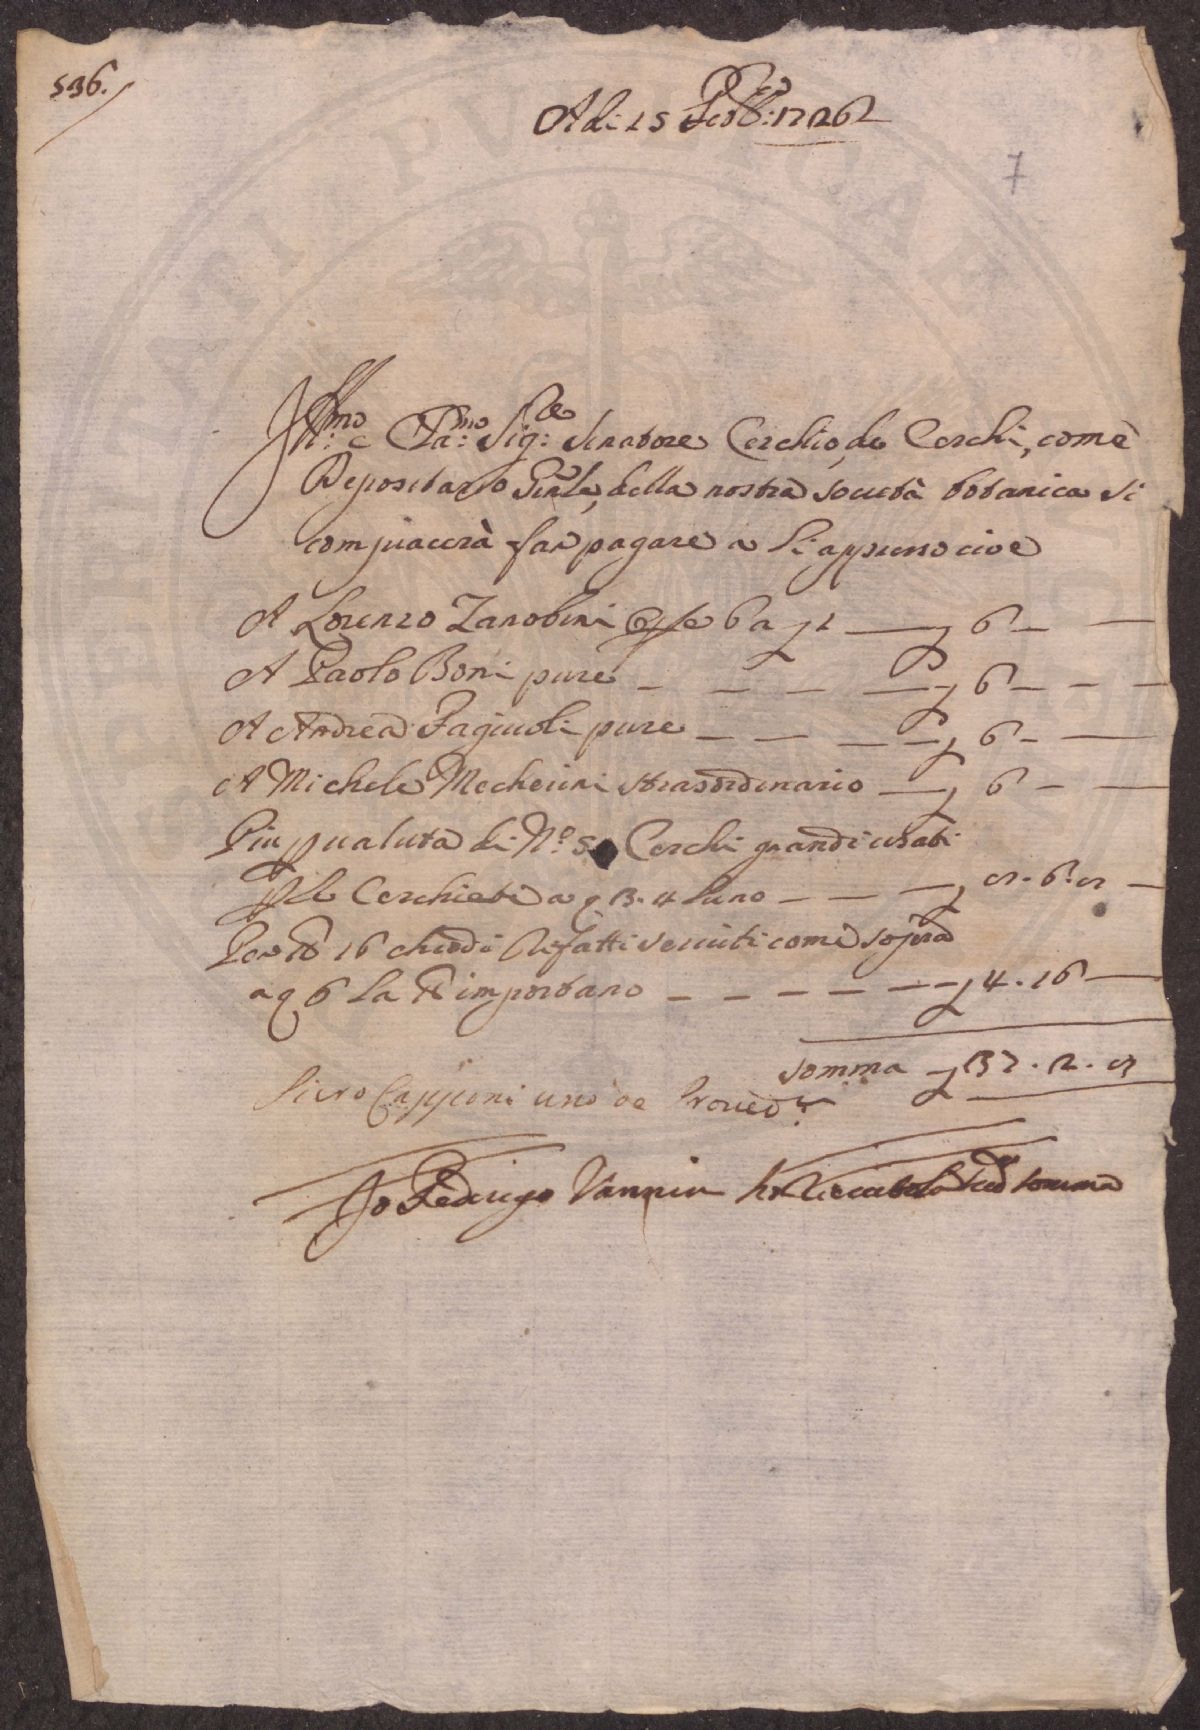 536.
Adi 15 Feb.: 1726
7
Ill:mo e Cla:mo Sig:re Senatore Cerchio de Cerchi, come
Depositario Gen.le della nostra società botanica si
compiacerà far pagare a li appresso cioè
A Lorenzo Zanobini opere 6 a £ 1 — £ 6 — —
A Paolo Boni pure — — — — £ 6 — — —
A Andrea Fagiuoli pure — — — — £ 6 — —
A Michele Mecherini strasordinario — £ 6 — —
Piu p valuta di N.o 5 Cerchi grandi usati
a 13.4 l'uno — — — £
Per 16 chiodi Refatti seruiti come sopra
a 6 la importano — — — — — — £ 4 . 16 —
Somma £
Piero Capponi uno de Proued.ri
Io Federigo Vannini ho riceuto la somma